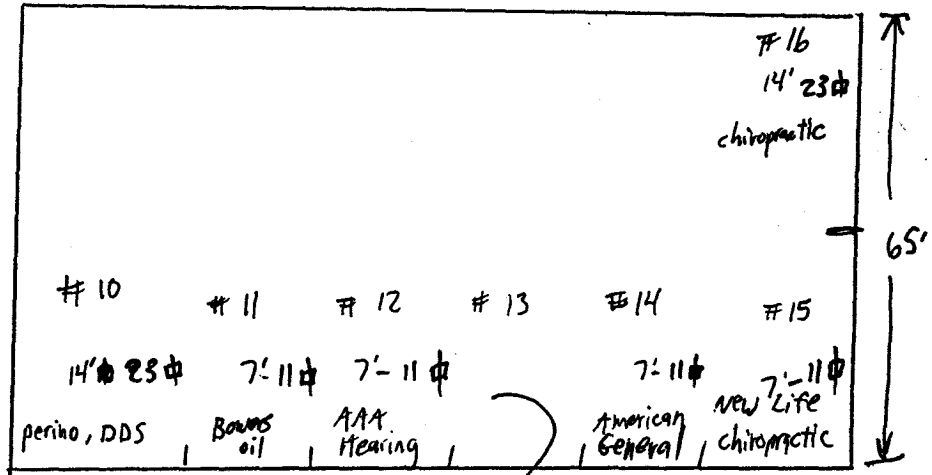 # 16
14' 23⌷
chiropractic
65'
# 10
# 11
# 12
# 13
# 14
# 15
14' 23⌷
7'-11⌷
7'-11⌷
7'-11⌷
7'-11⌷
perino, DDS
Bowns
oil
AAA
Hearing
American
General
New Life
chiropractic